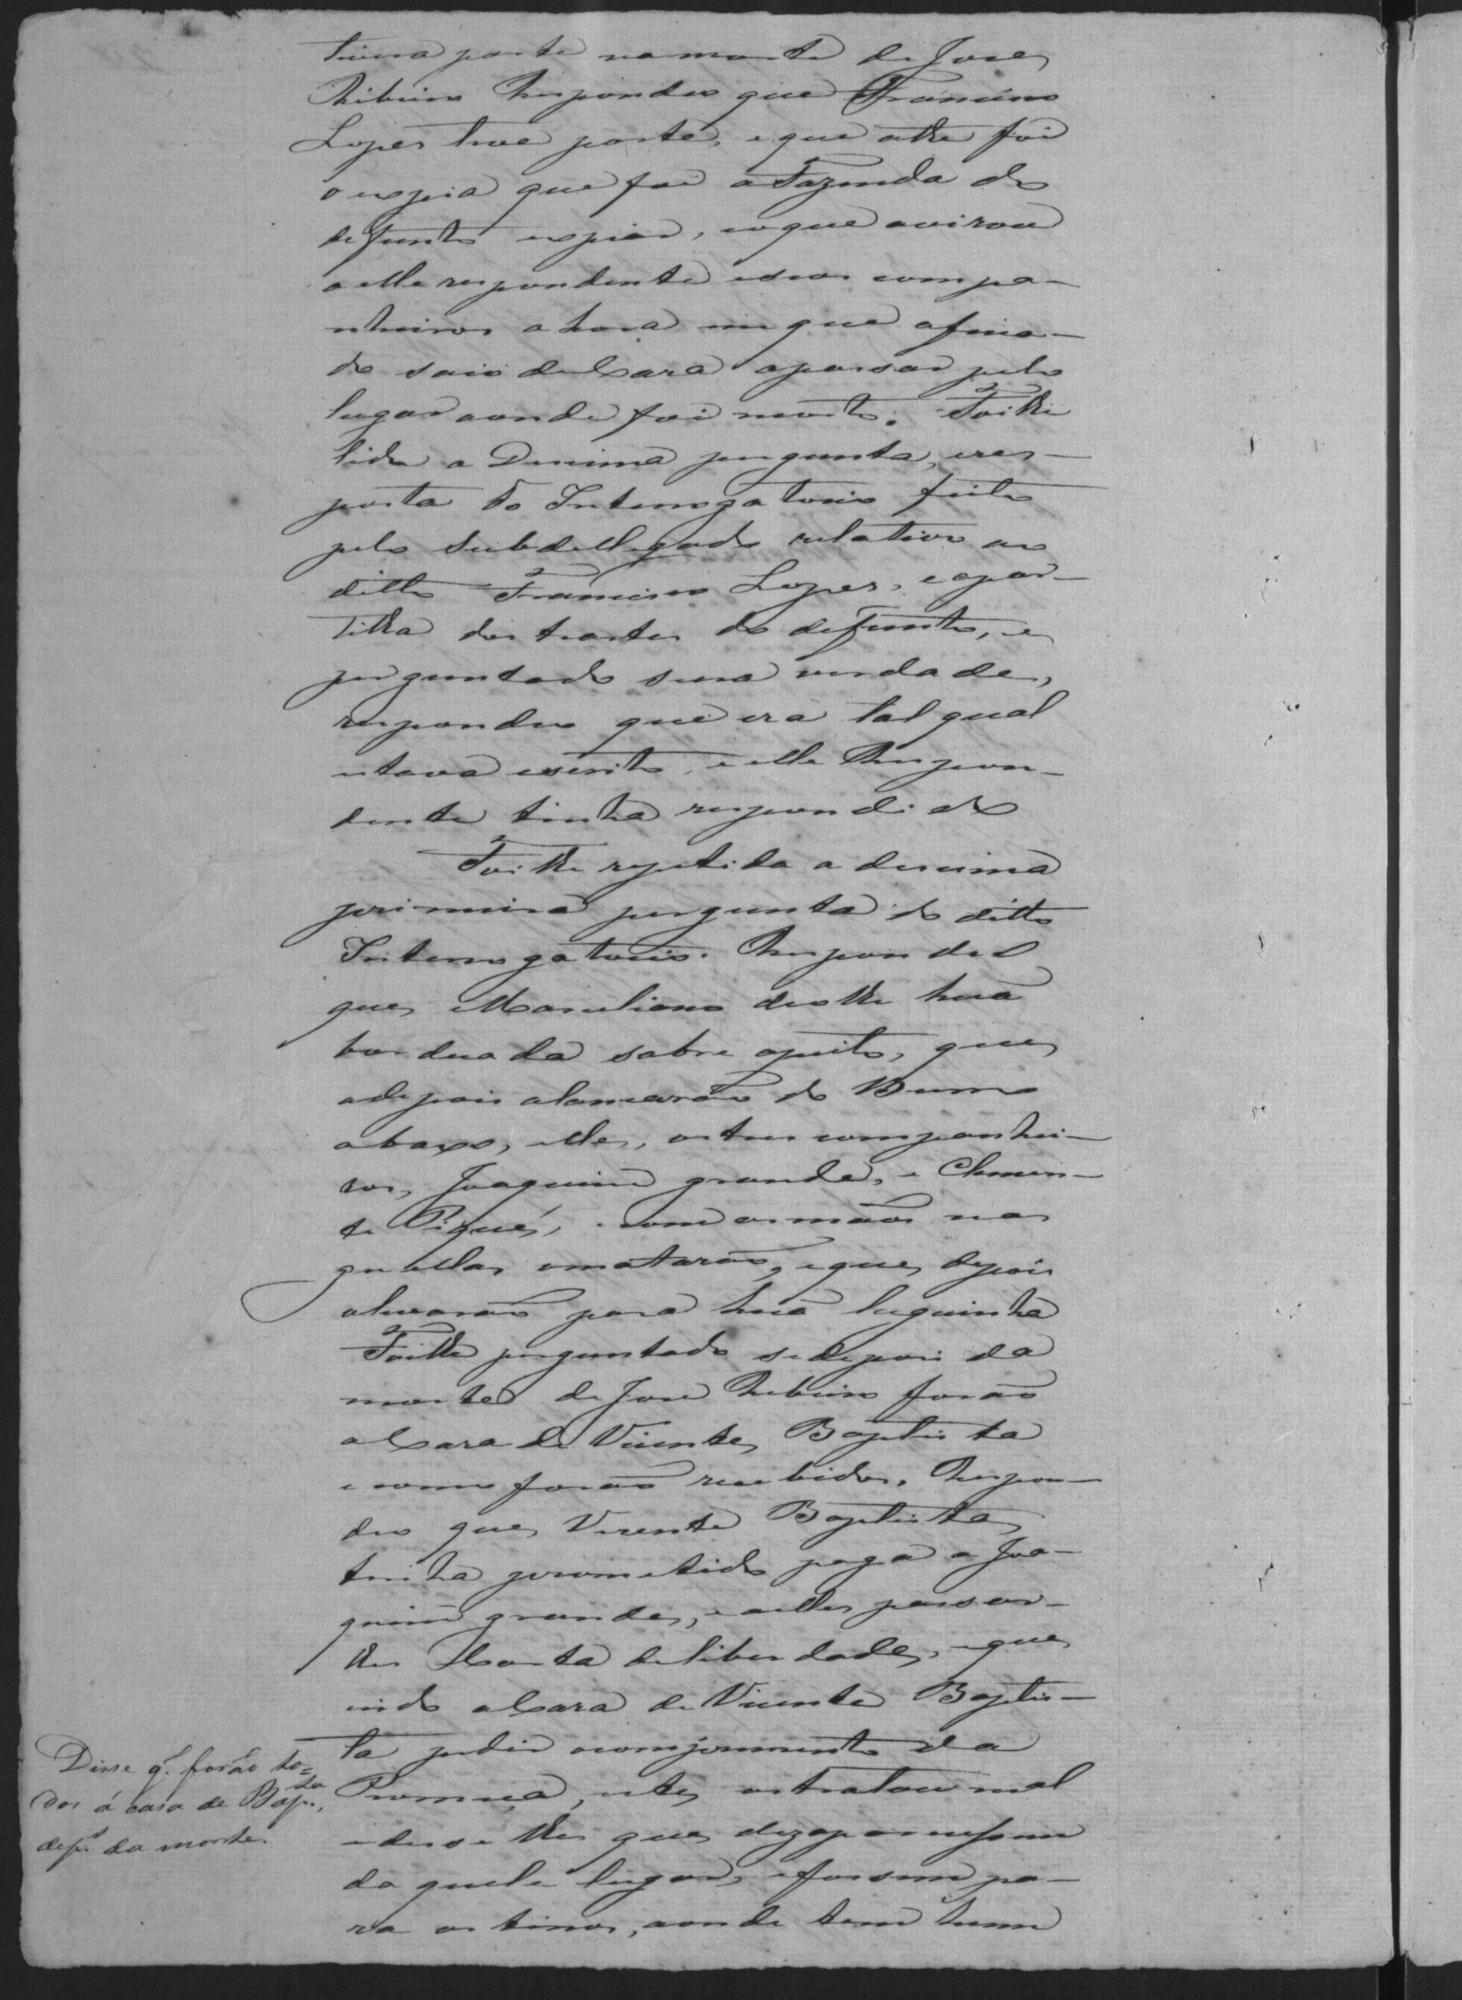 tivera parte na morte de José
Ribeiro Respondeo que Francisco
Lopes teve parte, e que athe foi
o espia que foi a Fazenda do
defunto espiar, e o que avizou
a elle respondente e seos compa-
nheiros a hora em que o fina-
do saio de Casa a passar pelo
lugar aonde foi morto. Foi lhe
lida a Decima pergunta, e res-
posta do Interrogatorio feito
pelo Subdellegado relativo ao
ditto Francisco Lopes, e a par-
tilha dos trastes do defunto, e
perguntado se era verdade,
respondeo que era tal qual
estava escrito, e elle Respon-
dente tinha respondido
Foi lhe repetida a decima
primeira pergunta do ditto
Interrogatorio. Respondeo
que Marceliano deo lhe huã
bordoada sobre o peito, que
adepois alancarão do Burro
abaxo, elle, os tres companhei-
ros, Joaquim grande, e Clemen-
te Piqué, e com as mãos nas
guellas o matarão, e que depois
o levarão para huã leguinha
Foi lhe perguntado se depois da
morte de José Ribeiro forão
a Casa de Vicente Baptista
e como forão recebidos. Respon-
deo que Vicente Baptista
tinha promettido paga a Joa-
quim grande, e a elles passar-
lhes Carta de liberdade, e que
indo a Casa de Vicente Baptis-
ta pedir o comprimento da
Promeça, este os tratou mal
e disse lhes que dezaparecessem
daquele lugar, e fossem pa-
ra os tinos, aonde tem hum
Disse q.' forão to=
dos á casa de Bap.ta,
dep.s da morte.